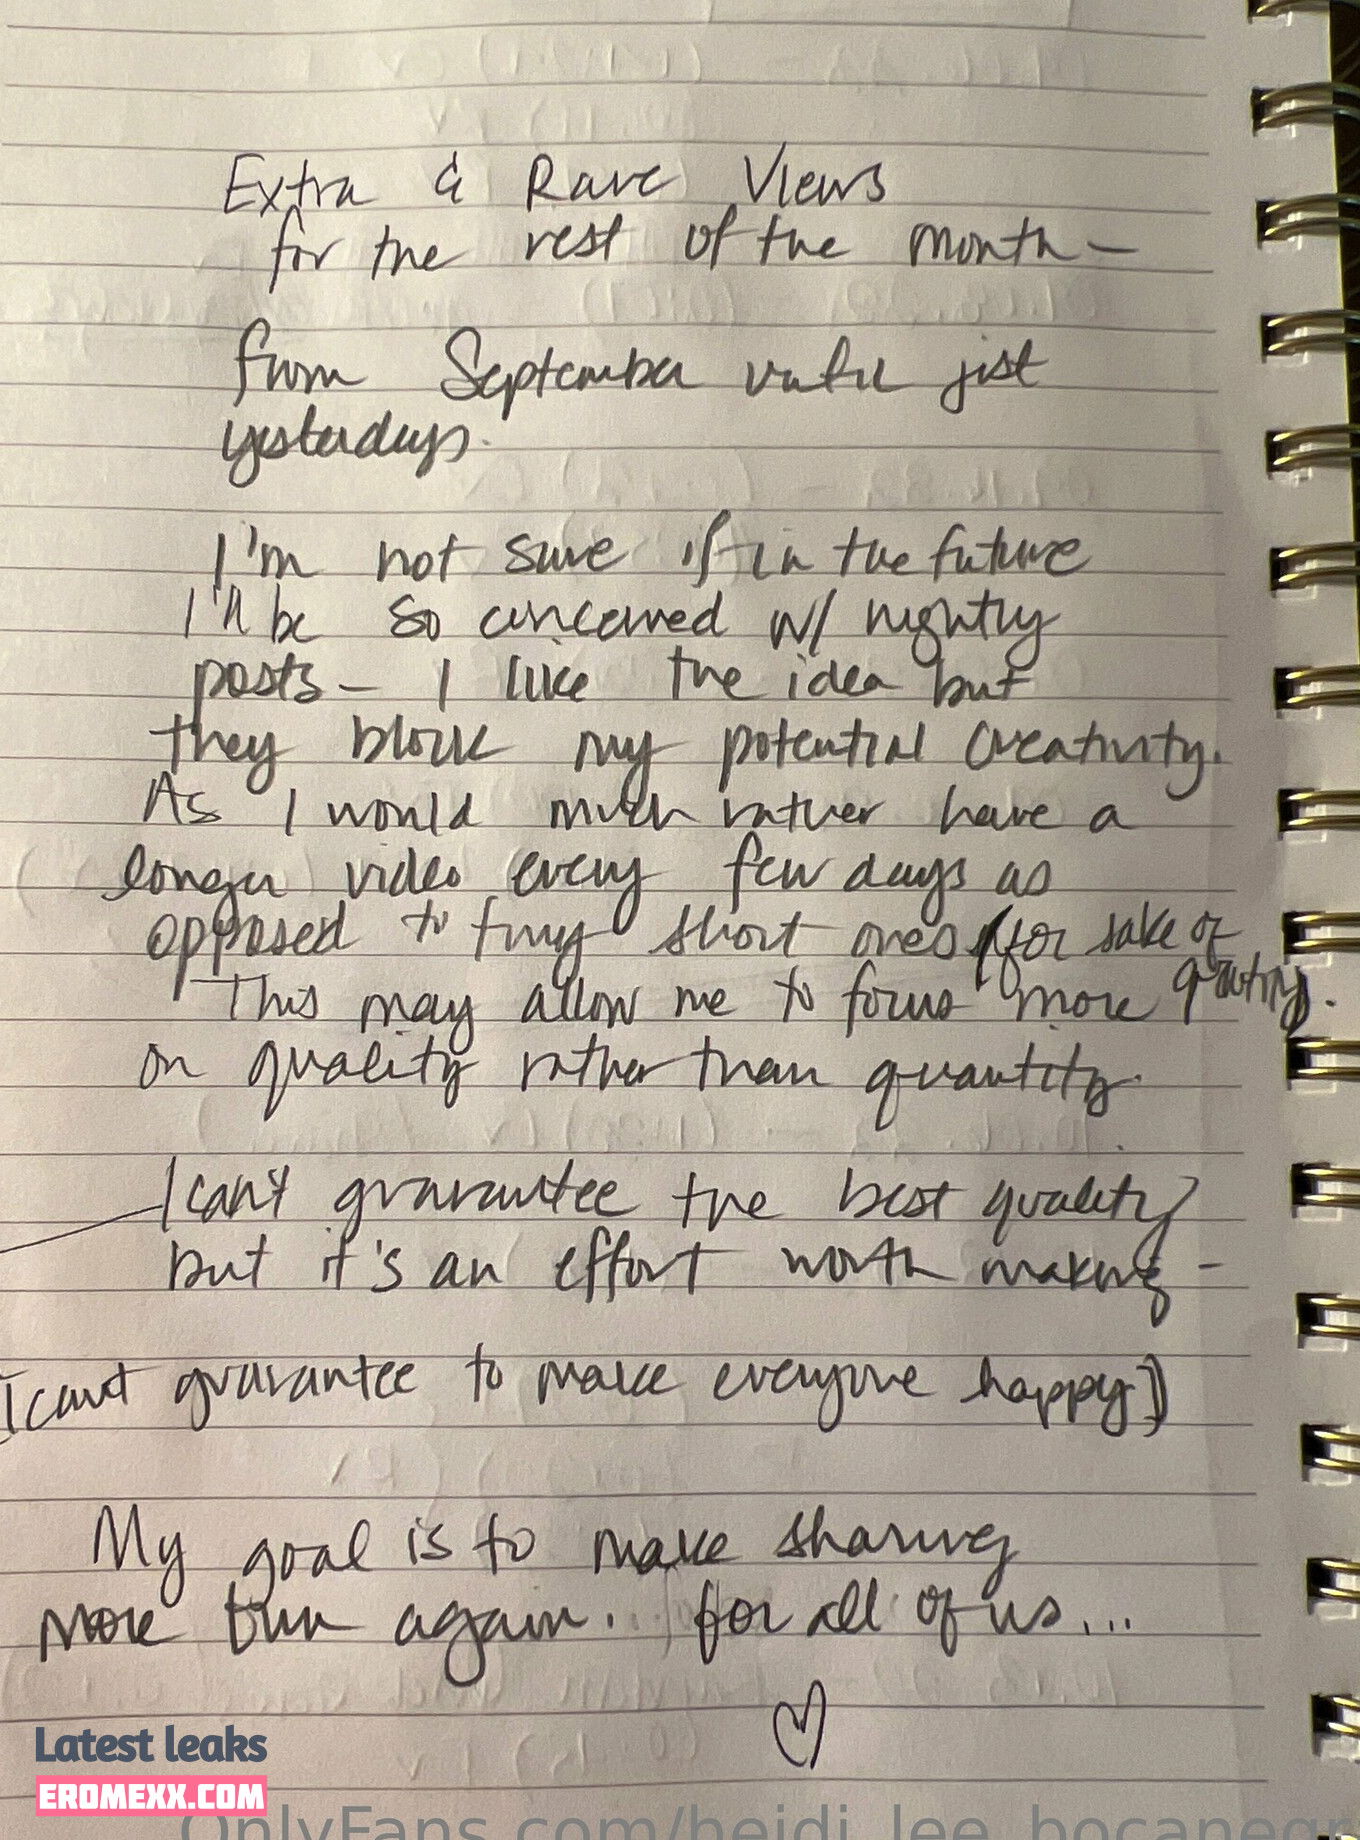 Extra & Rare Views
for the rest of the month –
from September until just
yesterday.
I'm not sure if in the future
I'll be so concerned w/ nightly
posts – I like the idea but
they block my potential creativity.
As I would much rather have a
longer video every few days as
opposed to tiny short ones for sake of
quantity.
This may allow me to focus more
on quality rather than quantity.
I can't guarantee the best quality
but it's an effort worth making –
I can't guarantee to make everyone happy)
My goal is to make sharing
more fun again... for all of us...
Latest leaks
EROMEXX.COM
OnlyFans.com/heidi_lee_bocanegr